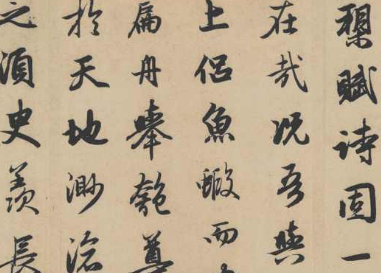 槊賦詩固一
在哉况吾與
上侣魚鰕而
扁舟舉匏尊
於天地渺滄
之須臾羨長